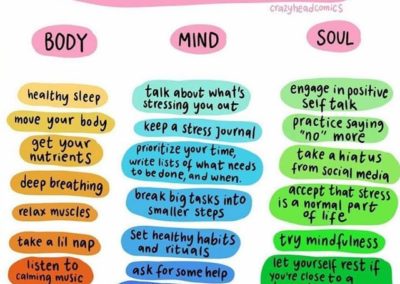 crazyheadcomics
BODY
MIND
SOUL
healthy sleep
move your body
get your
nutrients
deep breathing
relax muscles
take a lil nap
listen to
calming music
talk about what's
stressing you out
keep a stress journal
prioritize your time,
write lists of what needs
to be done, and when.
break big tasks into
smaller steps
set healthy habits
and rituals
ask for some help
engage in positive
self talk
practice saying
"no" more
take a hiatus
from social media
accept that stress
is a normal part
of life
try mindfulness
let yourself rest if
you're close to a